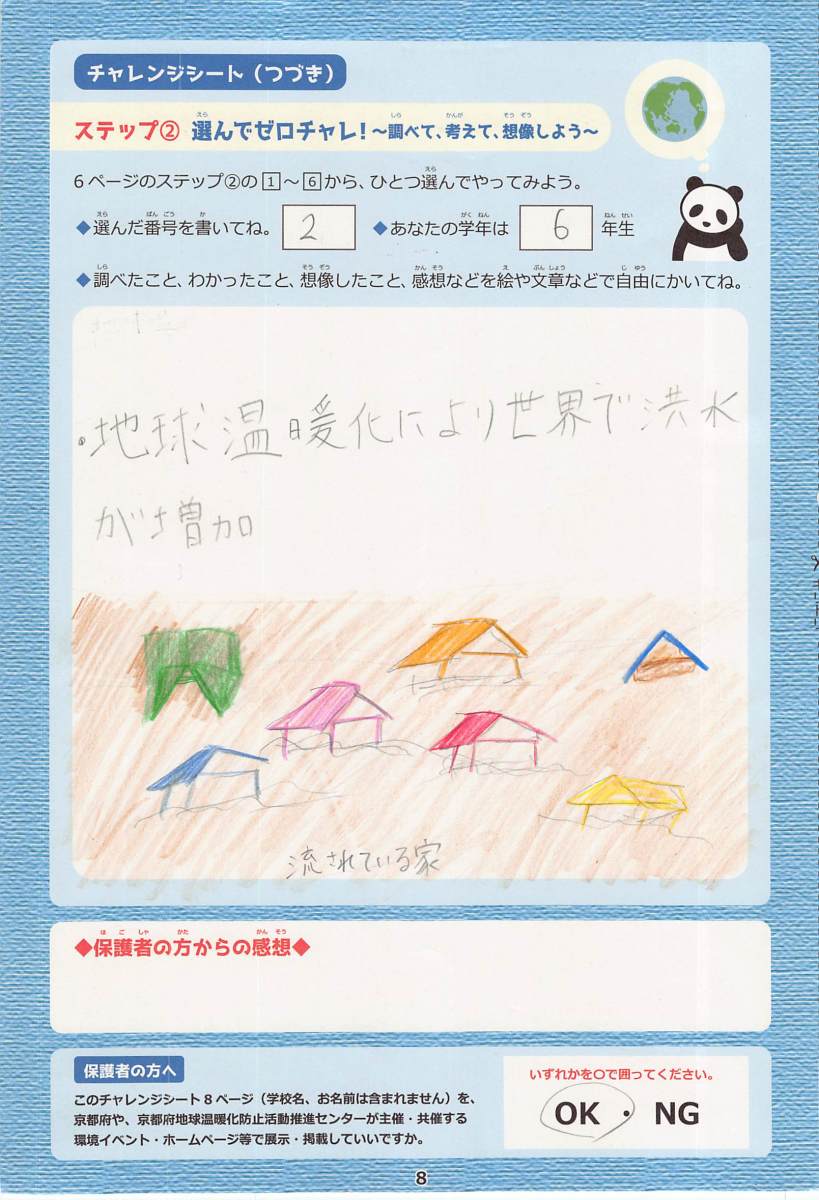 チャレンジシート（つづき）
ステップ② 選んでゼロチャレ！～調べて、考えて、想像しよう～
6ページのステップ②の1～6から、ひとつ選んでやってみよう。
◆選んだ番号を書いてね。 2 ◆あなたの学年は 6 年生
◆調べたこと、わかったこと、想像したこと、感想などを絵や文章などで自由にかいてね。
・地球温暖化により世界で洪水
が増加
流されている家
◆保護者の方からの感想◆
保護者の方へ
このチャレンジシート8ページ（学校名、お名前は含まれません）を、
京都府や、京都府地球温暖化防止活動推進センターが主催・共催する
環境イベント・ホームページ等で展示・掲載していいですか。
いずれかを○で囲ってください。
OK ・ NG
8